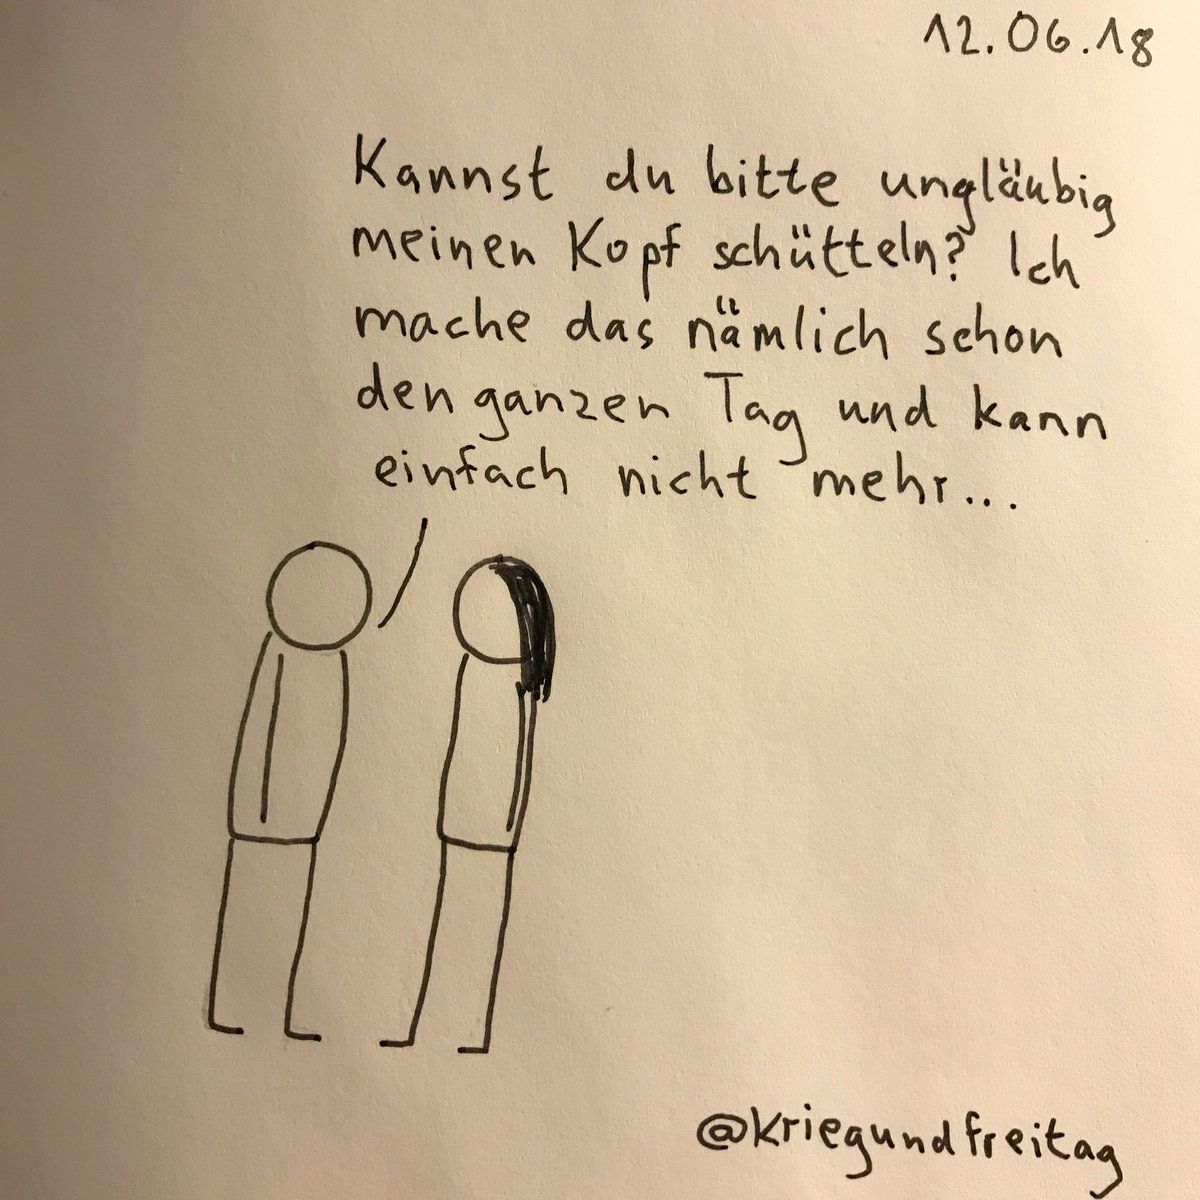 12.06.18
Kannst du bitte ungläubig
meinen Kopf schütteln? Ich
mache das nämlich schon
den ganzen Tag und kann
einfach nicht mehr...
@kriegundfreitag